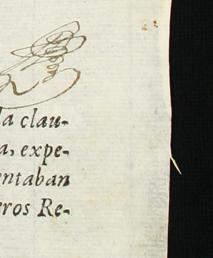 la clau-
a, expe-
entaban
eros Re-